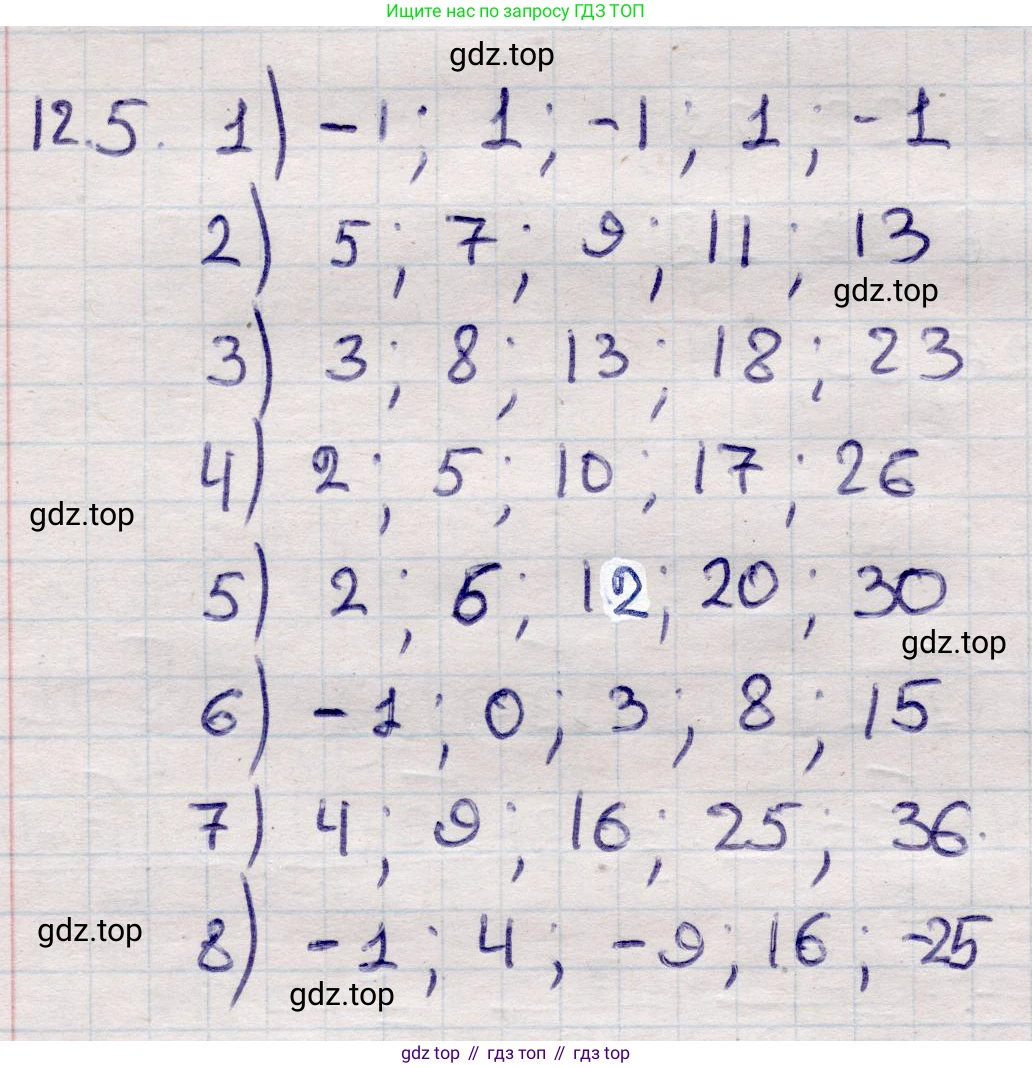 Ищите нас по запросу ГДЗ ТОП
gdz.top
12.5. 1) -1; 1; -1; 1; -1
2) 5; 7; 9; 11; 13
gdz.top
3) 3; 8; 13; 18; 23
4) 2; 5; 10; 17; 26
gdz.top
5) 2; 6; 12; 20; 30
gdz.top
6) -1; 0; 3; 8; 15
7) 4; 9; 16; 25; 36.
8) -1; 4; -9; 16; -25
gdz.top
gdz.top
gdz top // гдз топ // gdz top